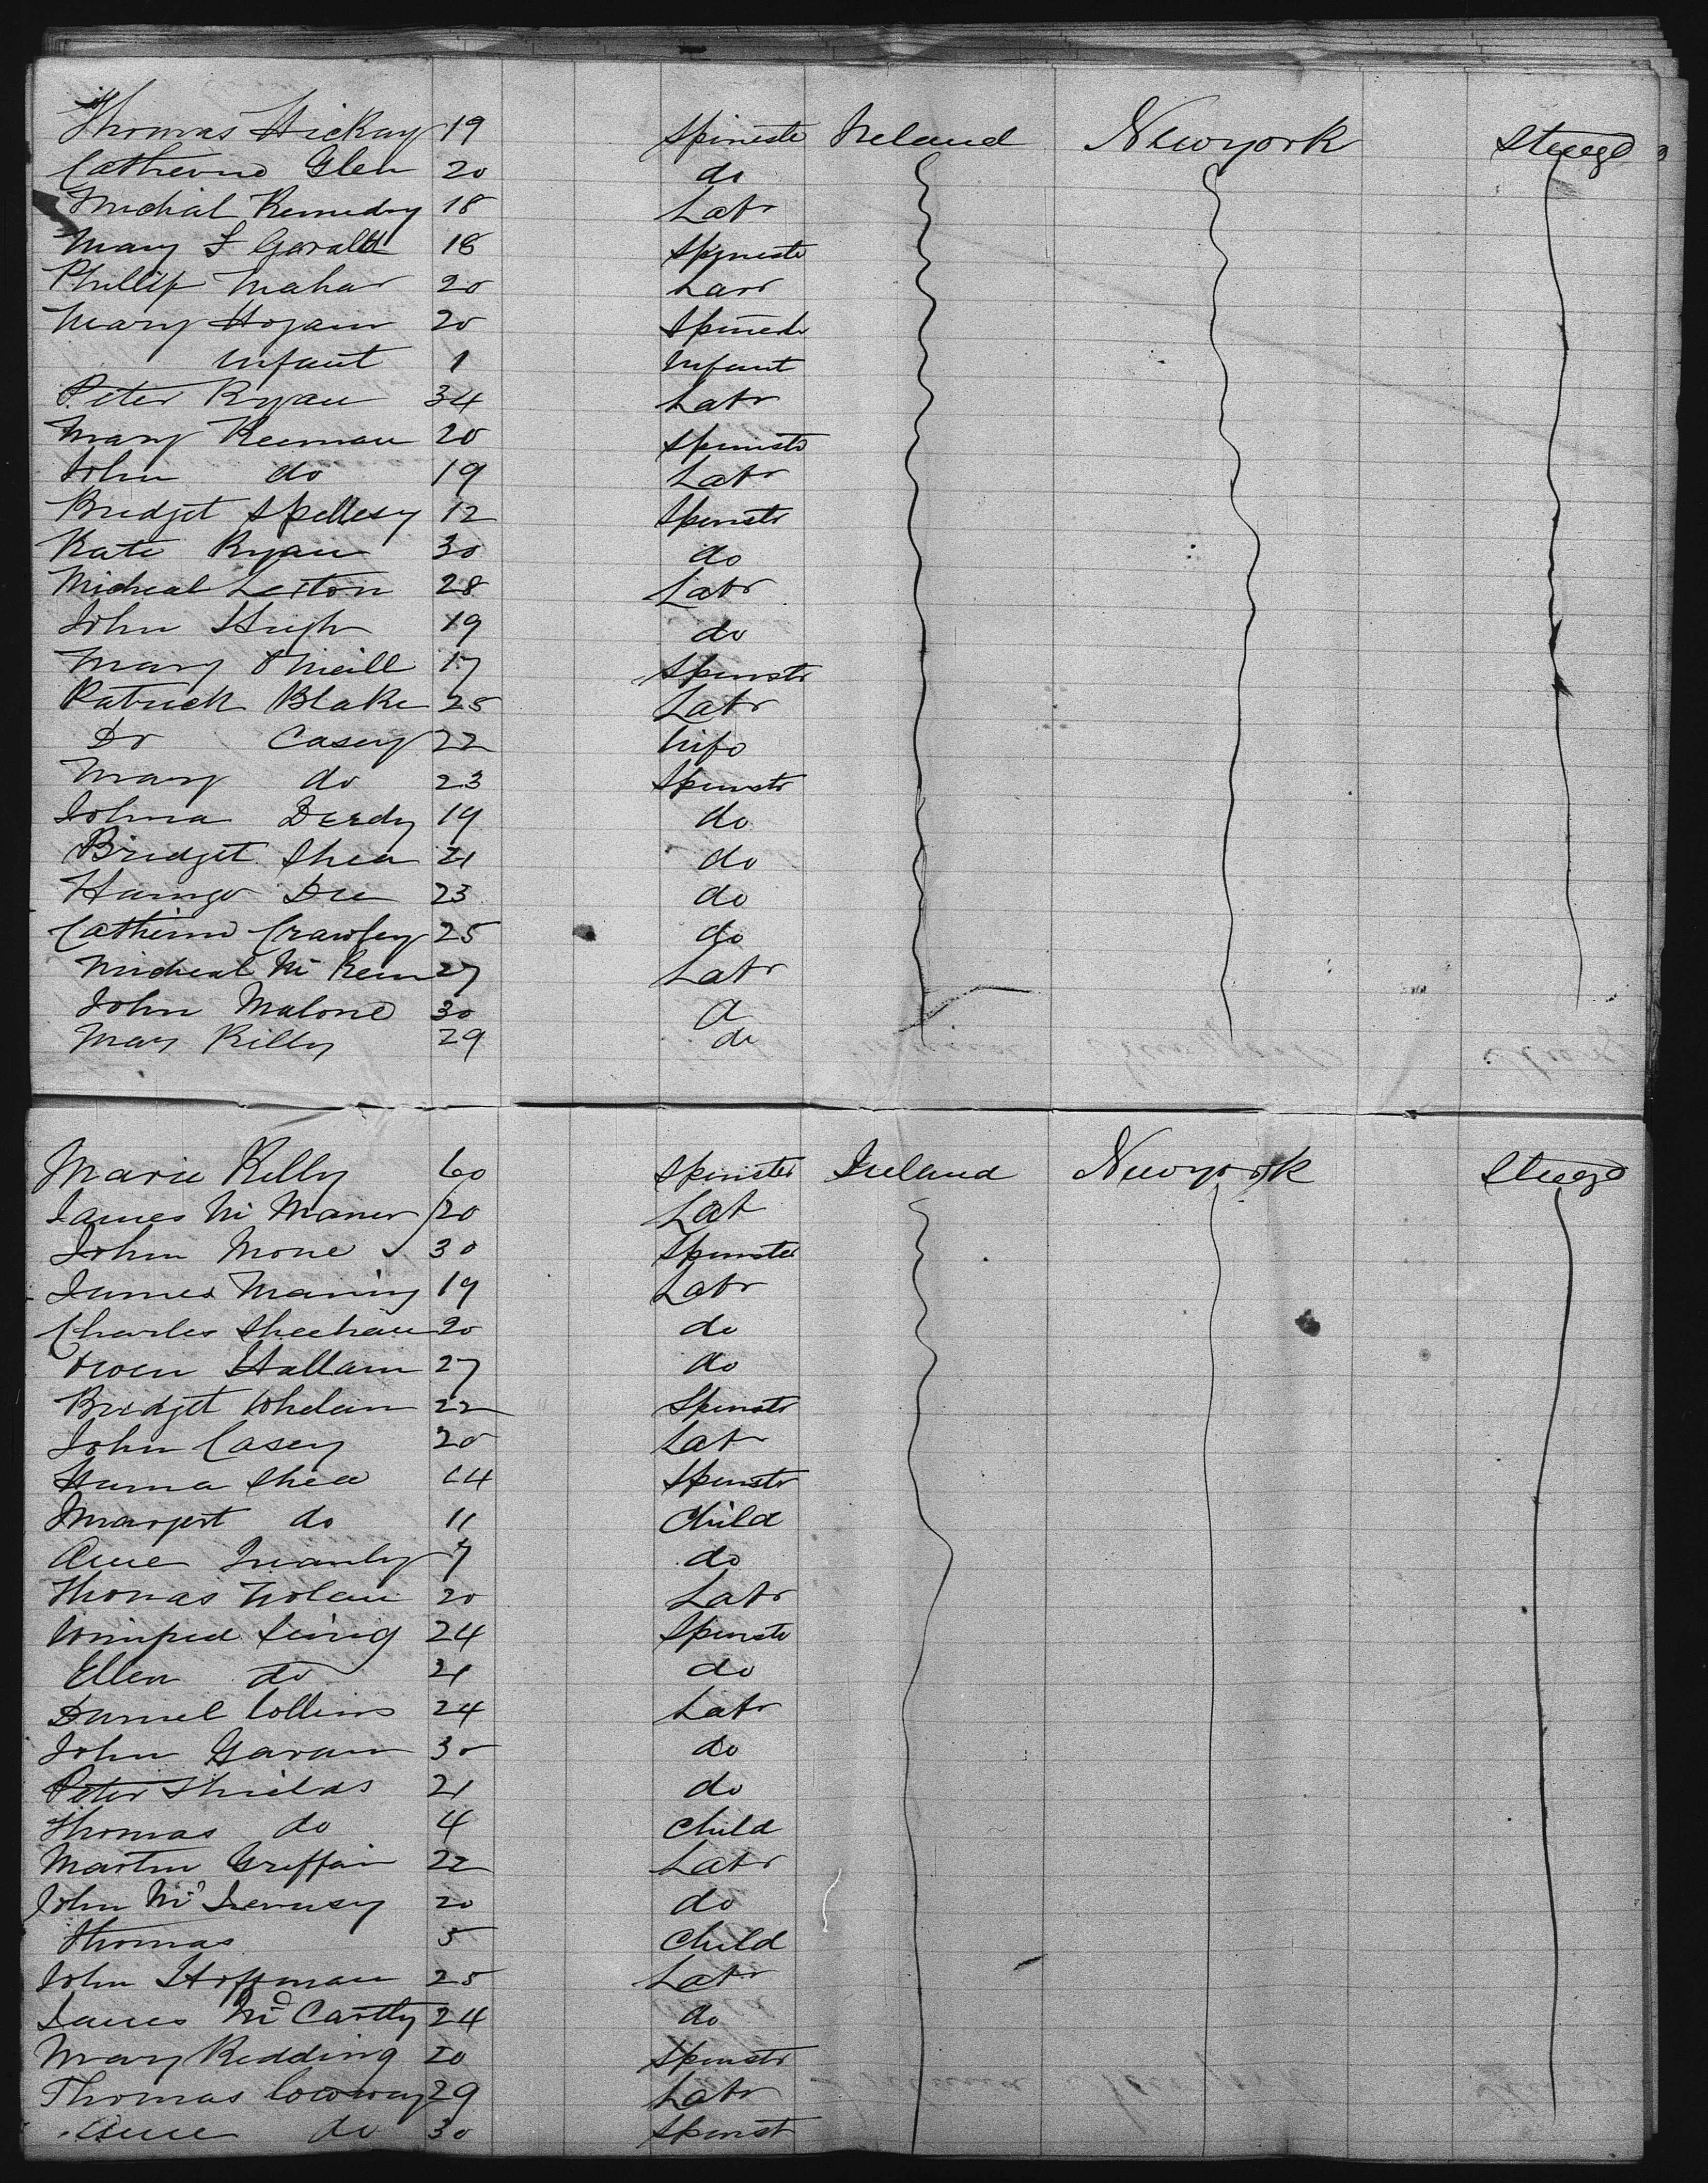 Thomas Hickay 19 Spinste Ireland Newyork Steege
Catherine Glen 20 do
Michal Kennedy 18 Labr
Mary F Gerald 18 Spinste
Phillip Mahar 20 Labr
Mary Hogan 20 Spinste
Infant 1 Infant
Peter Ryan 34 Labr
Mary Keernan 20 Spinste
John do 19 Labr
Bridget Spellesy 12 Spinstr
Kate Ryan 30 do
Micheal Lexton 28 Labr
John Hugh 19 do
Mary O Neill 17 Spinstr
Patrick Blake 25 Labr
Do Casey 22 Wife
Mary do 23 Spinstr
Johna Deedy 19 do
Bridget Shea 21 do
Dee 23 do
Catherine Crawley 25 do
Micheal Mc 27 Labr
John Malone 30
Mary Killy 29 do
Marie Killy 60 Spinster Ireland Newyork Steege
James Mc Maner 20 Lab
John Mone 30 Spinster
James Maning 19 Labr
Charles Sheehan 20 do
Owen Hallam 27 do
Bridget Whelan 22 Spinstr
John Casey 20 Labr
Hanna Shea 14 Spinstr
Margert do 11 Child
Anne 7 do
Thomas Nolan 20 Labr
Winifred 24 Spinste
Ellen do 21 do
Daniel Collins 24 Labr
John Gavan 30 do
Peter Shields 21 do
Thomas do 4 Child
Martin Griffain 22 Labr
John Mc 20 do
Thomas 5 Child
John Hoffman 25 Labr
James Mc Cartty 24 do
Mary Redding 20 Spinstr
Thomas Cowway 29 Labr
Anne do 30 Spinst